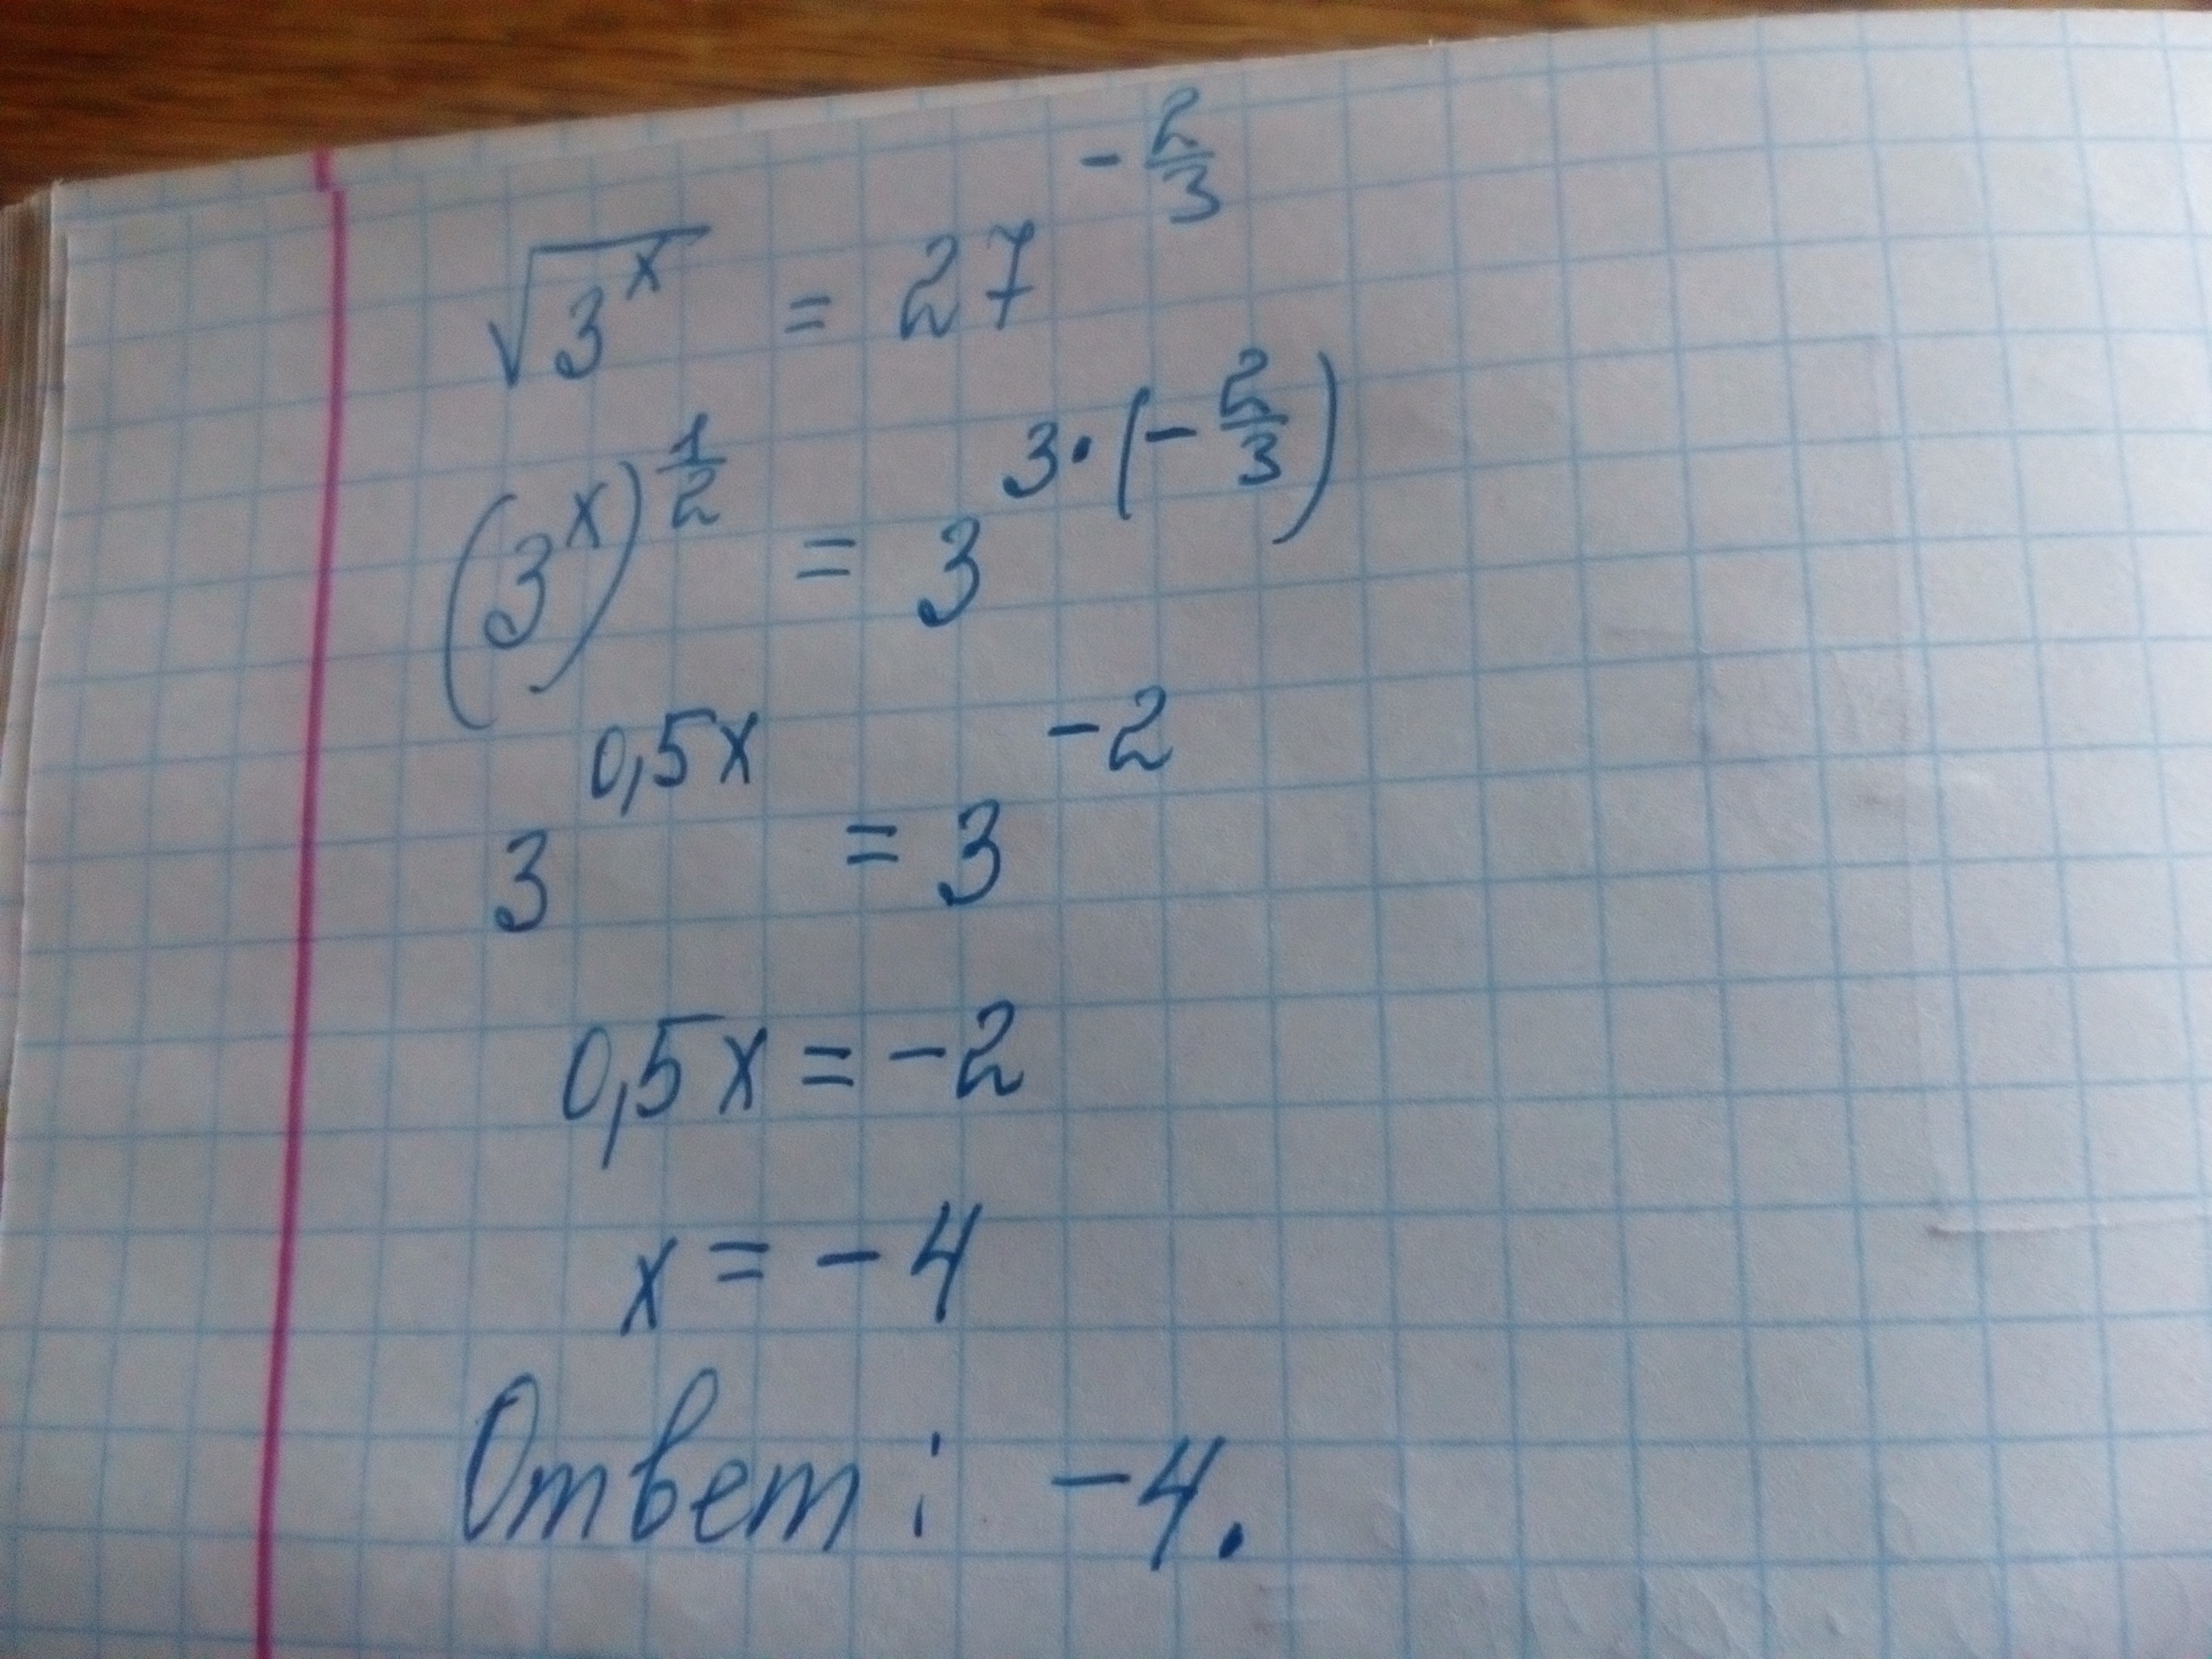 √3ˣ = 27^(-2/3)
(3ˣ)^(1/2) = 3^(3·(-2/3))
3^(0,5x) = 3^(-2)
0,5x = -2
x = -4
Ответ: -4.